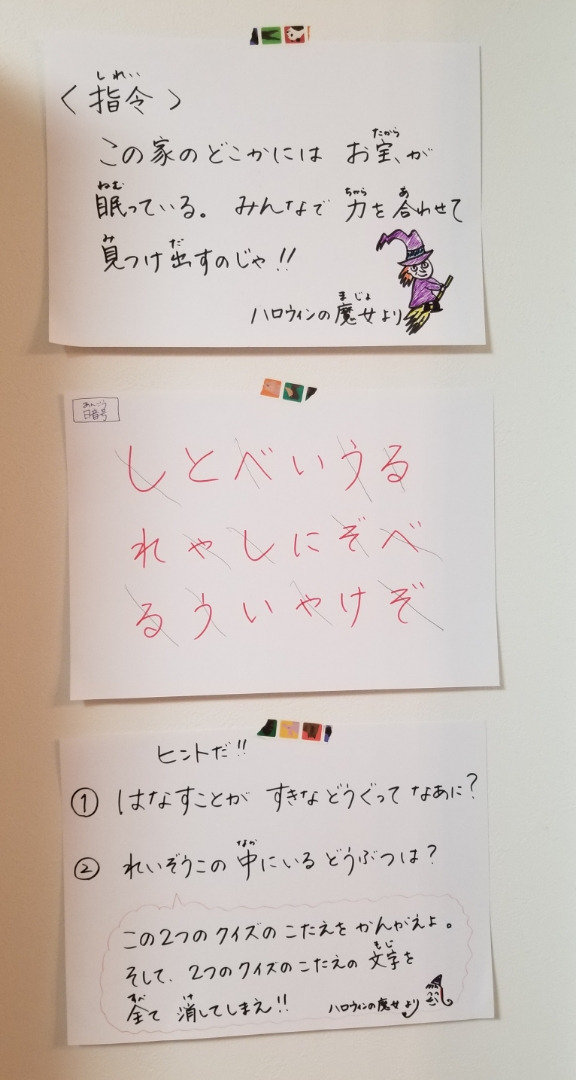 〈指令〉
しれい
この家のどこかには お宝が
たから
眠っている。 みんなで 力を合わせて
ねむ ちから あ
見つけ出すのじゃ!!
み だ
ハロウィンの魔女より
まじょ
あんごう
暗号
しとべいうる
れゃしにぞべ
るういゃけぞ
ヒントだ!!
① はなすことが すきなどうぐって なあに?
② れいぞうこの 中にいる どうぶつは?
なか
この2つの クイズの こたえを かんがえよ。
そして、2つのクイズのこたえの 文字を
もじ
全て 消してしまえ!!
すべ け
ハロウィンの魔女 より